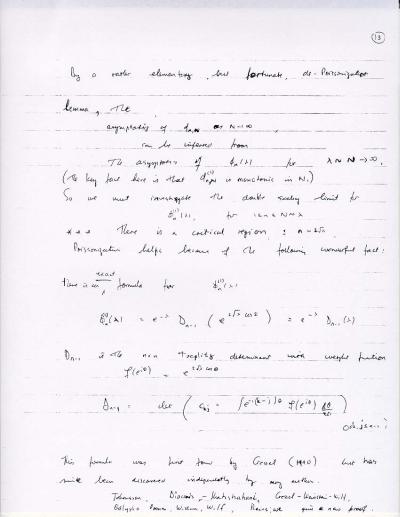 13
By a rather elementary, but fortunate, de-Poissonization
lemma, the
asymptotics of as N→∞
can be inferred from
the asymptotics of φn(λ) for λ ~ N → ∞.
(The key fact here is that is monotonic in N.)
So we must investigate the double scaling limit for
φn(λ), for 1 ≤ n ≤ N ~ λ
*** There is a critical region : n ~ 2√λ
Poissonization helps because of the following wonderful fact:
exact
there is an formula for φn(λ)
φn(λ) = e^-λ Dn-1 ( e^2√λ cosθ ) = e^-λ Dn-1(λ)
Dn-1 is the n×n Toeplitz determinant with weight function
f(e^iθ) = e^2√λ cosθ
Dn-1 = det ( ckj = ∫ e^-i(k-j)θ f(e^iθ) dθ/2π )
0≤k,j≤n-1
This formula was first found by Gessel (1990) but has
since been discovered independently by many authors.
Johansson, Diaconis, Gessel-Weinstein-Wilf,
Odlyzko Widom, Wilf, Rains, we give a new proof.